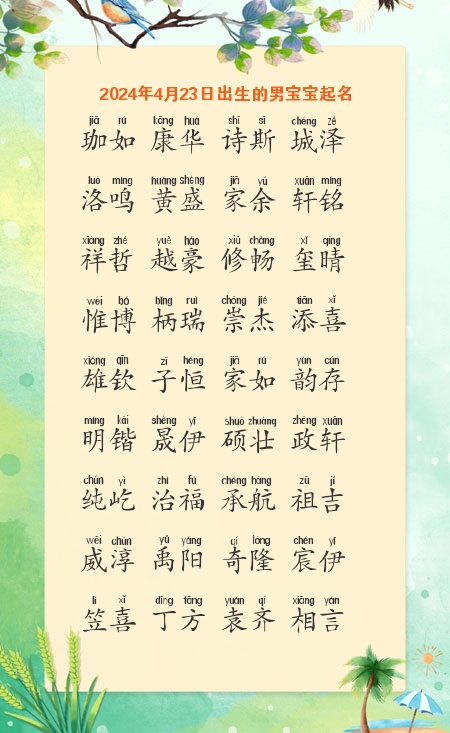 2024年4月23日出生的男宝宝起名
jiā rú kāng huá shī sī chéng zé
珈如 康华 诗斯 城泽
luò míng huáng shèng jiā yú xuān míng
洛鸣 黄盛 家余 轩铭
xiàng zhé yuè háo xiū chàng xǐ qíng
祥哲 越豪 修畅 玺晴
wéi bó bǐng ruì chóng jié tiān xǐ
惟博 柄瑞 崇杰 添喜
xióng qīn zǐ héng jiā rú yùn cún
雄钦 子恒 家如 韵存
míng kǎi shèng yī shuò zhuàng zhèng xuān
明锴 晟伊 硕壮 政轩
chún yì zhì fú chéng háng zǔ jí
纯屹 治福 承航 祖吉
wēi chún yǔ yáng qí lóng chén yī
威淳 禹阳 奇隆 宸伊
lì xǐ dīng fāng yuán qí xiāng yán
笠喜 丁方 袁齐 相言